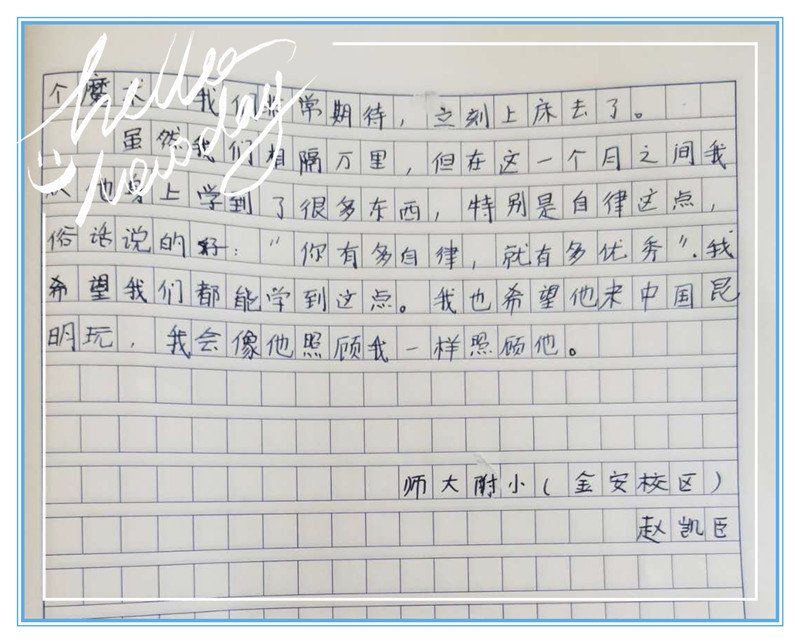 hello
newday
个魔术，我们非常期待，立刻上床去了。
虽然我们相隔万里，但在这一个月之间我
从他身上学到了很多东西，特别是自律这点，
俗话说的好：“你有多自律，就有多优秀”.我
希望我们都能学到这点。我也希望他来中国昆
明玩，我会像他照顾我一样照顾他。
师大附小（金安校区）
赵凯臣